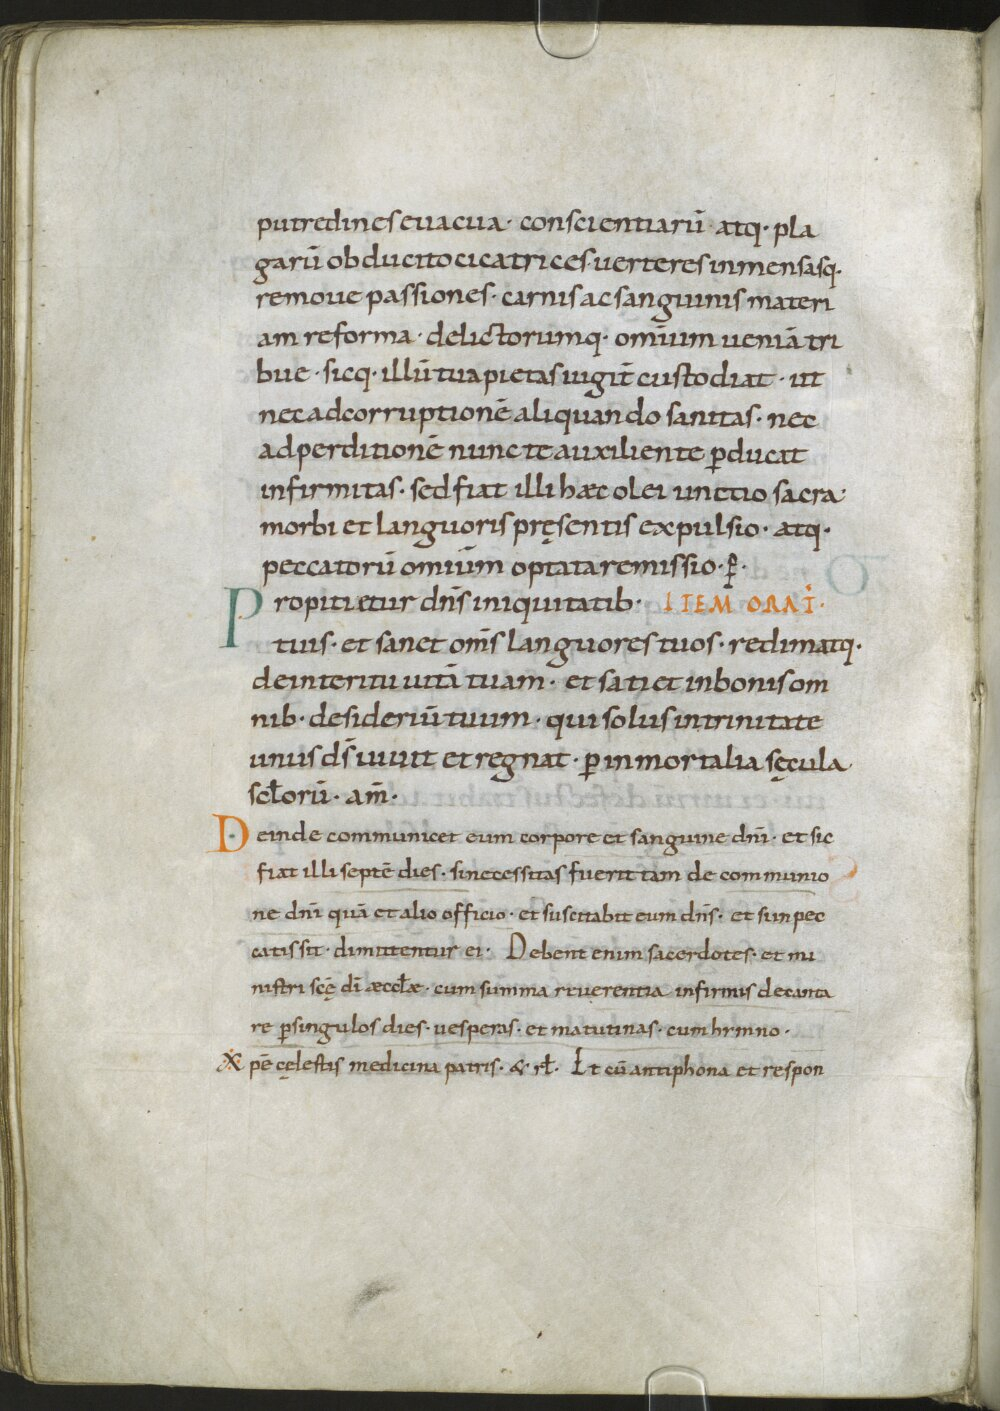 putredines euacua · conscientiarū · atq· pla
garū obducito cicatrices ueteres inmensasq·
remoue passiones · carnis ac sanguinis materi
am reforma · delictorumq· omīum ueniā tri
bue · sicq· illū tua pietas iugit̄ custodiat · ut
nec ad corruptionē aliquando sanitas · nec
ad perditionē nunc te auxiliente p̱ducat
infirmitas · sed fiat illi hæc olei unctio sacra·
morbi et languoris pręsentis expulsio · atq·
peccatorū omīum optata remissio · p̄ ·
Propitietur dn̄s iniquitatib· ITEM ORAT̄·
tuis · et sanet om̄s languores tuos · redimatq·
de interitu uitā tuam · et satiet in bonis om
nib· desideriū tuum · qui solus in trinitate
unus ds̄ uiuit et regnat · p̱ inmortalia sęcula
scl̄orū · am̄ ·
Deinde communicet eum corpore et sanguine dn̄i · et sic
fiat illi septē dies · si necessitas fuerit tam de communio
ne dn̄i quā et alio officio · et suscitabit eum dn̄s · et si in pec
catis sit · dimittentur ei · Debent enim sacerdotes · et mi
nistri scę̄ dī æccl̄æ · cum summa reuerentia infirmis decanta
re p̱ singulos dies · uesperas · et matutinas · cum hrmno ·
Xpē cęlestis medicina patris · & rl̄ · Et cū antiphona et respon